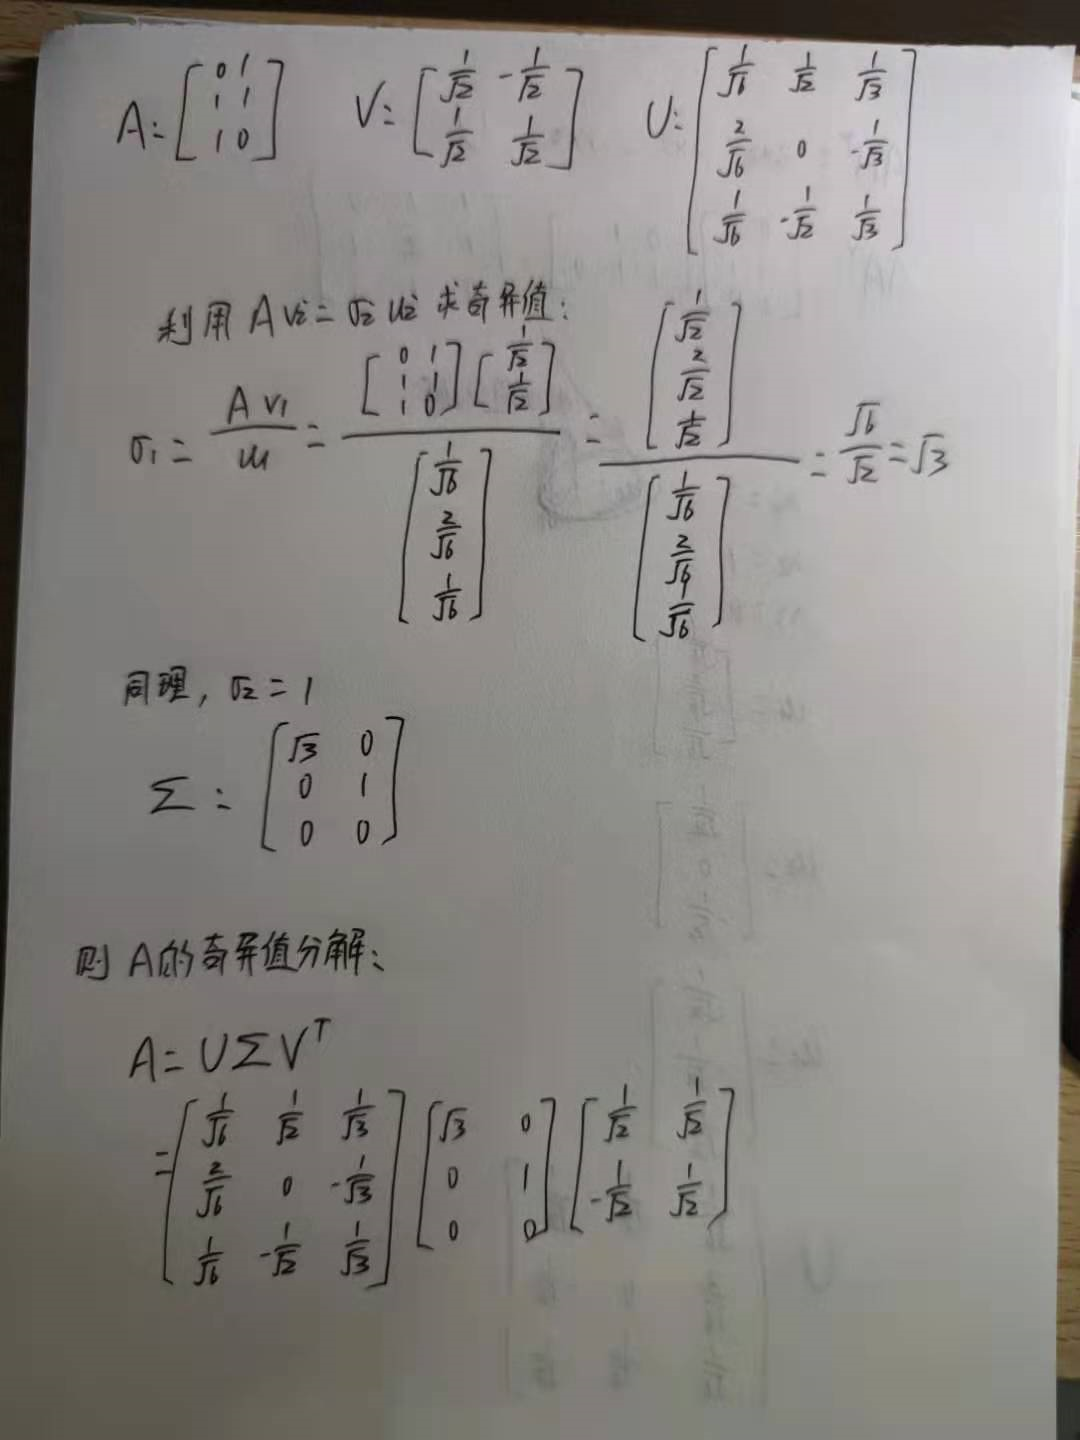 A = [0 1; 1 1; 1 0] V = [1/√2 -1/√2; 1/√2 1/√2] U = [1/√6 1/√2 1/√3; 2/√6 0 -1/√3; 1/√6 -1/√2 1/√3]
利用 A vi = σi ui 求奇异值:
σ1 = A v1 / u1 = [0 1; 1 1; 1 0] [1/√2; 1/√2] / [1/√6; 2/√6; 1/√6] = [1/√2; 2/√2; 1/√2] / [1/√6; 2/√6; 1/√6] = √6/√2 = √3
同理, σ2 = 1
Σ = [√3 0; 0 1; 0 0]
则 A的奇异值分解:
A = U Σ V^T
= [1/√6 1/√2 1/√3; 2/√6 0 -1/√3; 1/√6 -1/√2 1/√3] [√3 0; 0 1; 0 0] [1/√2 1/√2; -1/√2 1/√2]